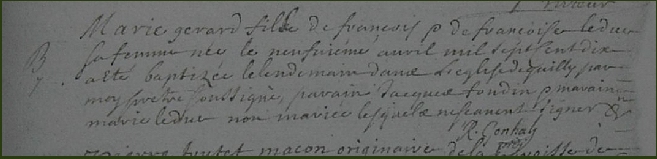 Marie gerard fille de francois & de francoise leduc
B
sa femme née le neufvieme auril mil sept cent dix
a esté baptizée le lendemain dans L'eglise de quilly par
moy pretre soussigné, parain Jacques tondin & maraine
marie leduc non mariée lesquels ne scauent signer
R. Gonhay
macon originaire de la